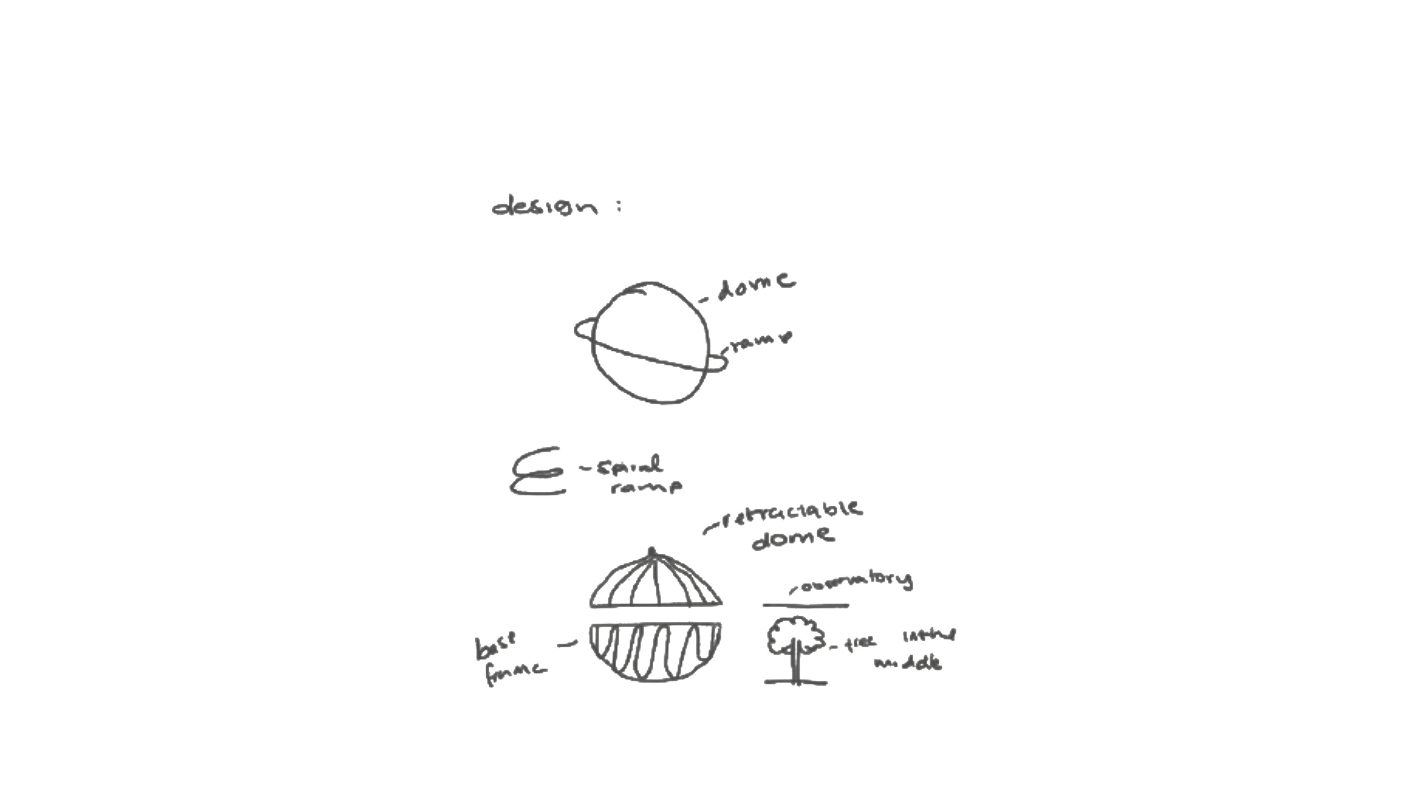 design :
dome
ramp
spiral
ramp
retractable
dome
observatory
base
frame
tree in the
middle